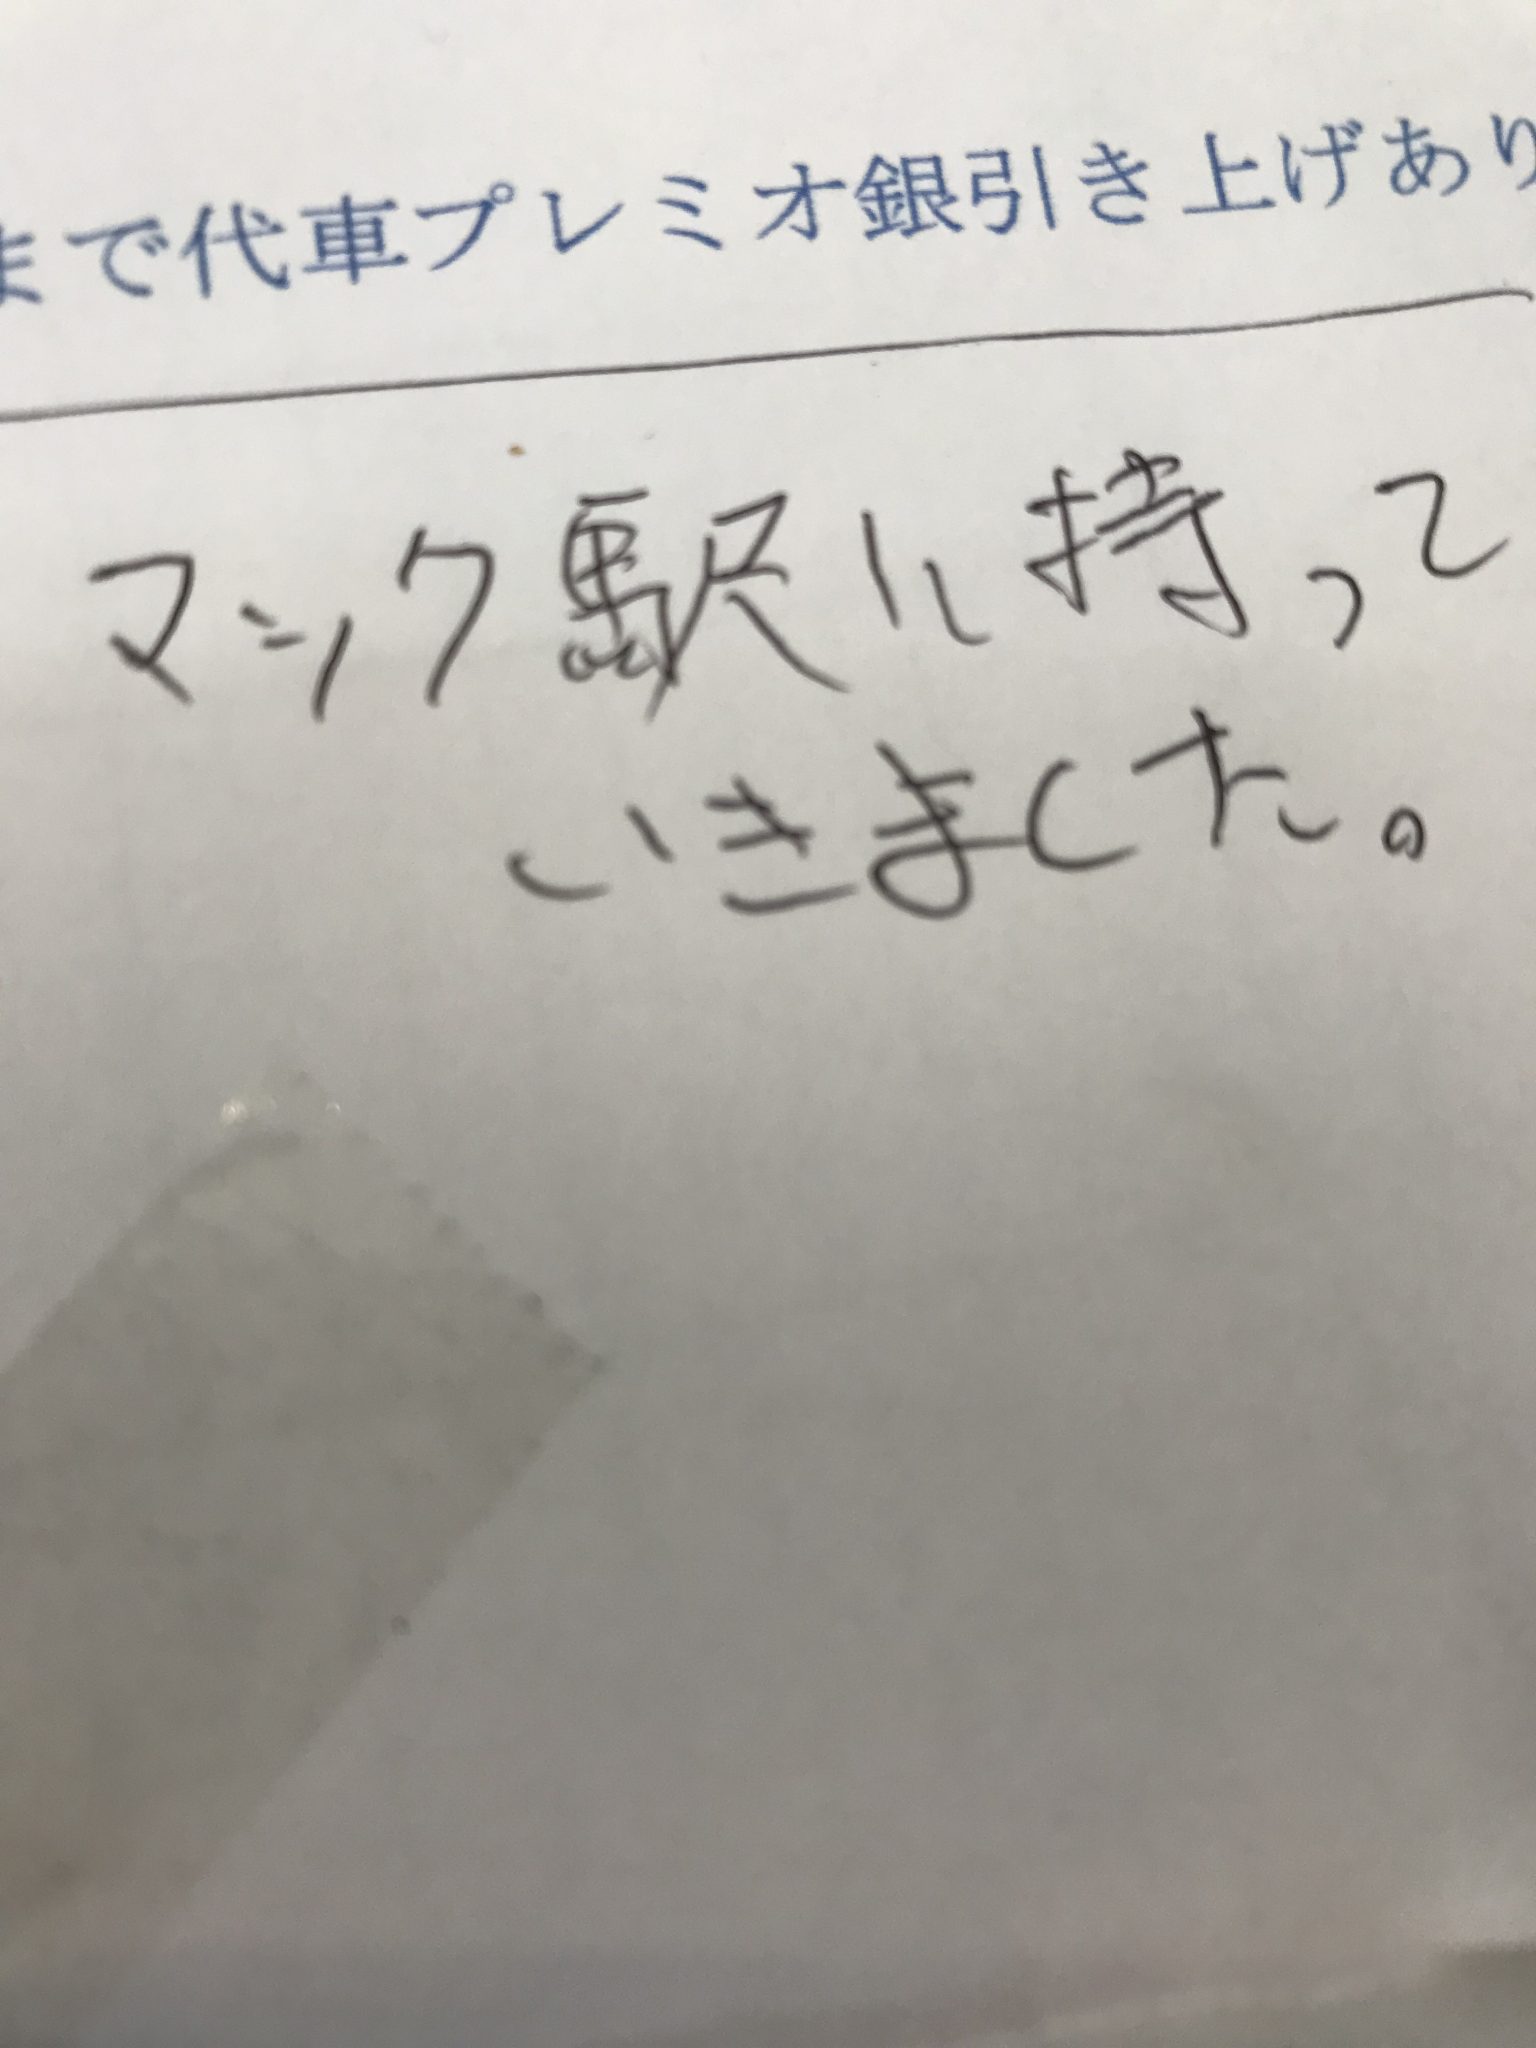 まで代車プレミオ銀引き上げあり
マック駅に持って
いきました。